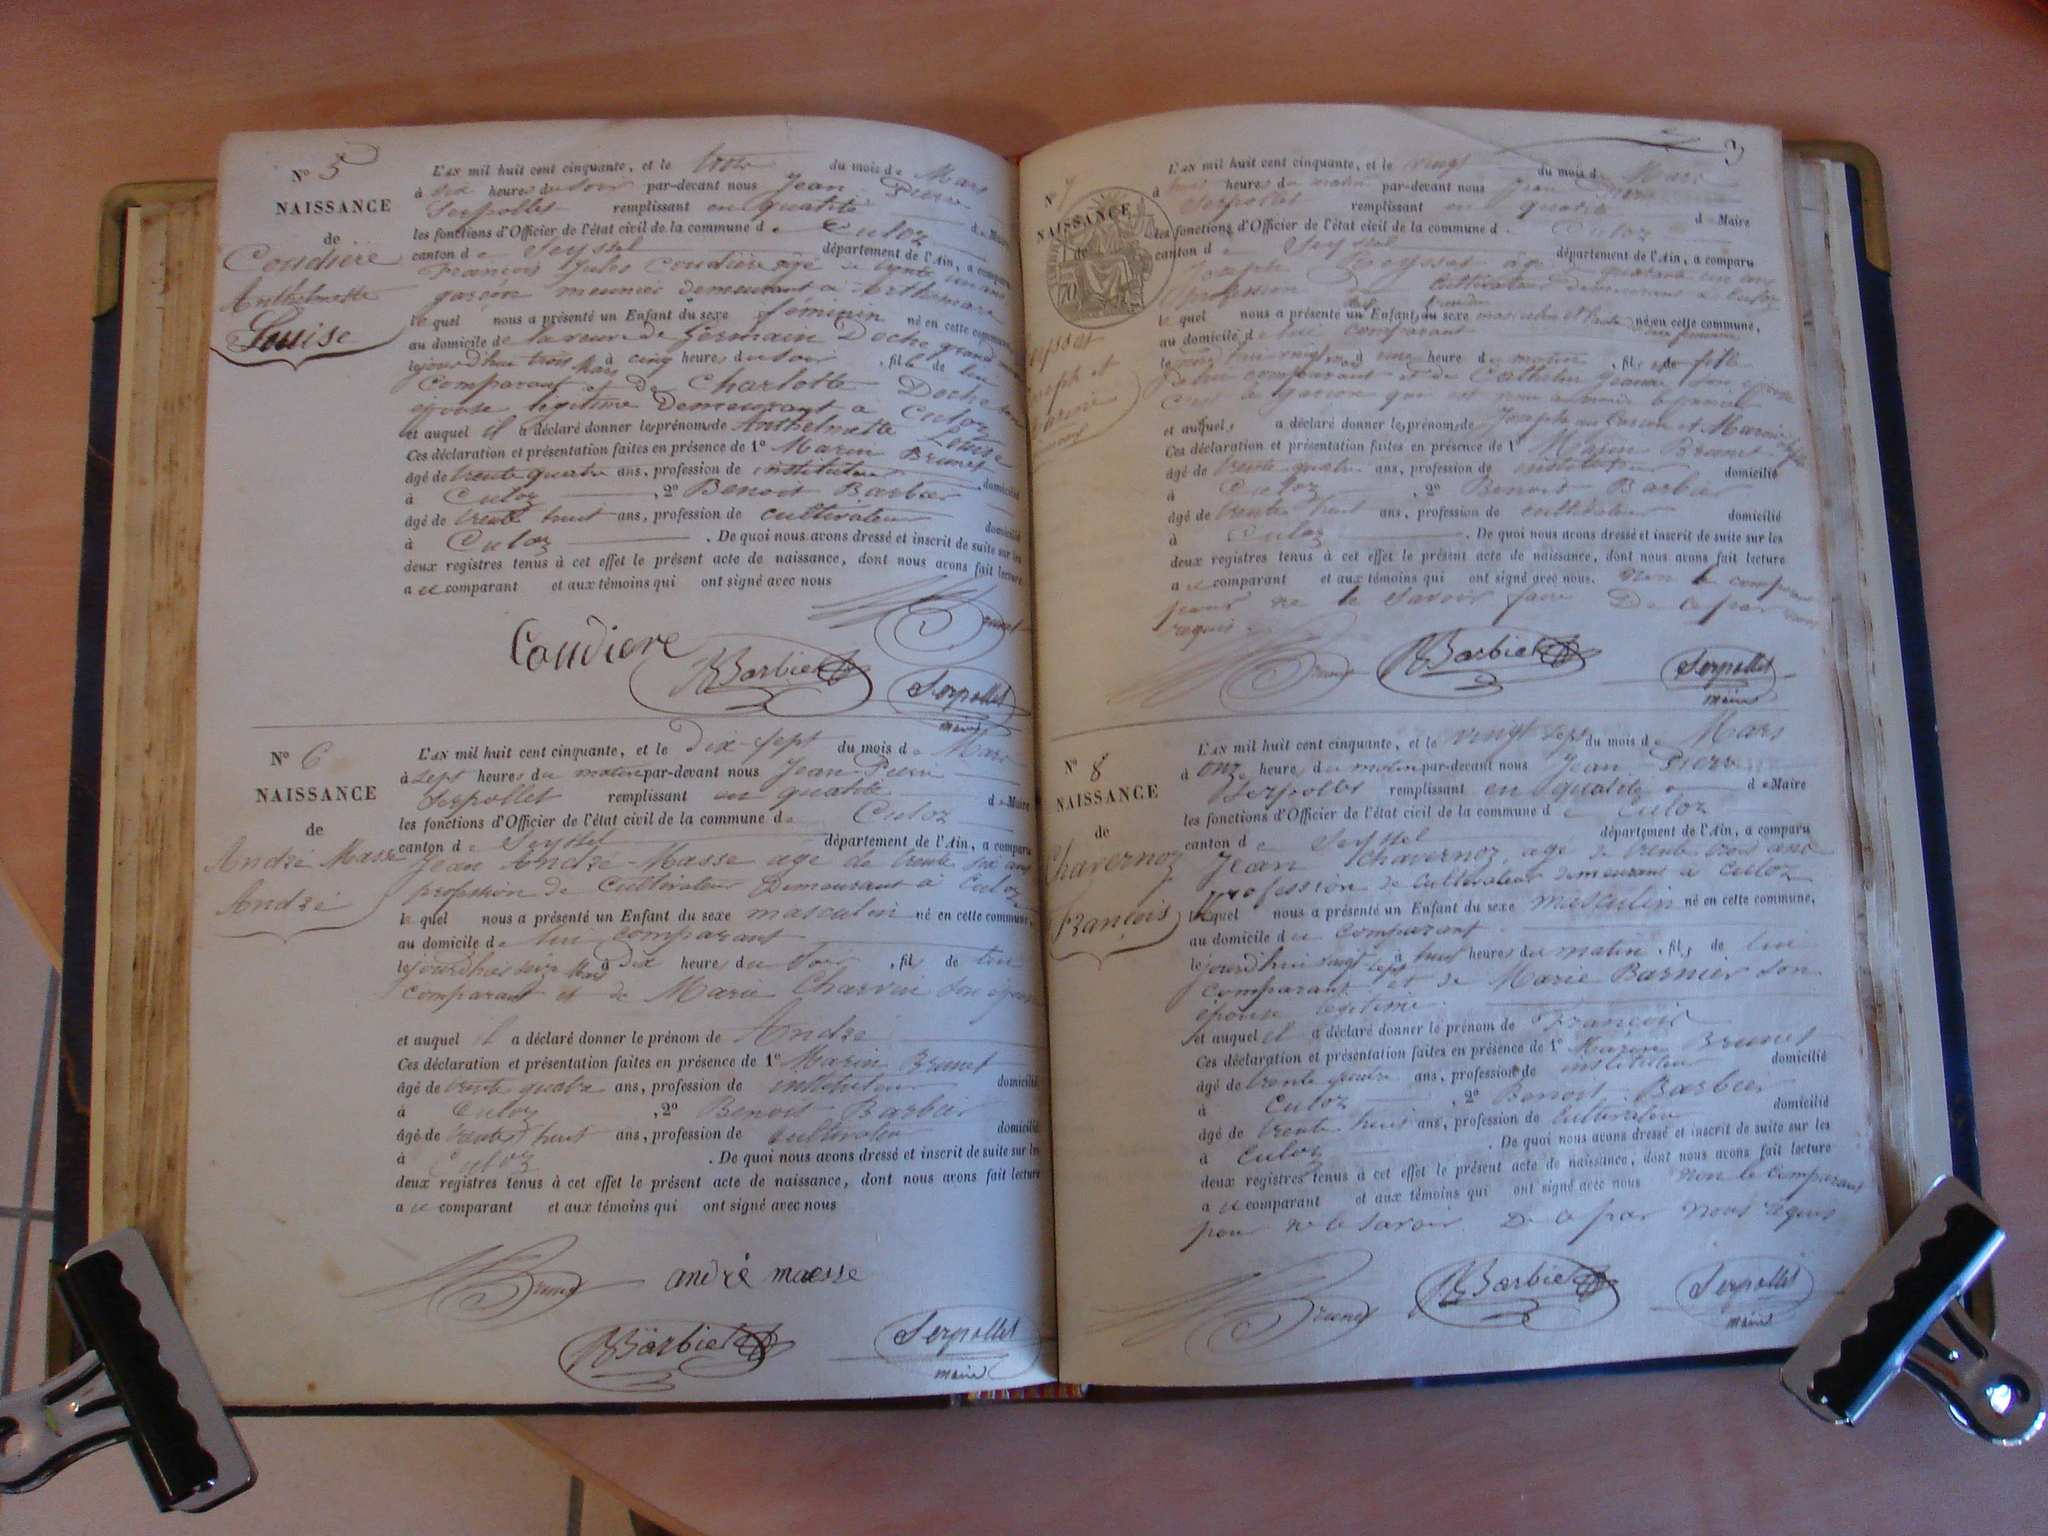 N° 5
NAISSANCE
de
Coudière
Anthelmette
Louise
L'AN mil huit cent cinquante, et le trois du mois de Mars
à six heures du soir par-devant nous Jean Pierre
Serpollet remplissant en qualité de Maire
les fonctions d'Officier de l'état civil de la commune de Culoz
canton de Seyssel département de l'Ain, a comparu
François Jules Coudière âgé de trente un ans
garçon meunier demeurant à Arthemare
lequel nous a présenté un Enfant du sexe féminin né en cette commune
au domicile de la veuve de Germain Doche grand
le jourd'hui trois Mars à cinq heures du soir, fille de lui
comparant et de Charlotte Doche son
épouse légitime demeurant à Culoz
et auquel il a déclaré donner les prénoms de Anthelmette Louise
Ces déclaration et présentation faites en présence de 1° Marin Brunet
âgé de trente quatre ans, profession de instituteur domicilié
à Culoz, 2° Benoit Barbier
âgé de trente huit ans, profession de cultivateur domicilié
à Culoz. De quoi nous avons dressé et inscrit de suite sur les
deux registres tenus à cet effet le présent acte de naissance, dont nous avons fait lecture
au comparant et aux témoins qui ont signé avec nous
Brunet
Coudiere
Barbier
Serpollet
maire
N° 6
NAISSANCE
de
André Masse
André
L'AN mil huit cent cinquante, et le dix-sept du mois de Mars
à sept heures du matin par-devant nous Jean Pierre
Serpollet remplissant en qualité de Maire
les fonctions d'Officier de l'état civil de la commune de Culoz
canton de Seyssel département de l'Ain, a comparu
Jean André-Masse age de trente six ans
profession de Cultivateur demeurant à Culoz
lequel nous a présenté un Enfant du sexe masculin né en cette commune,
au domicile de lui comparant
le jourd'hui seize Mars à dix heures du soir, fils de lui
comparant et de Marie Charvin son épouse
et auquel il a déclaré donner le prénom de André
Ces déclaration et présentation faites en présence de 1° Marin Brunet
âgé de trente quatre ans, profession de instituteur domicilié
à Culoz, 2° Benoit Barbier
âgé de trente huit ans, profession de cultivateur domicilié
à Culoz. De quoi nous avons dressé et inscrit de suite sur les
deux registres tenus à cet effet le présent acte de naissance, dont nous avons fait lecture
au comparant et aux témoins qui ont signé avec nous
Brunet
andré masse
Barbier
Serpollet
maire
3
N° 7
NAISSANCE
de
Joseph et
L'AN mil huit cent cinquante, et le vingt du mois de Mars
à heures du matin par-devant nous Jean Pierre
Serpollet remplissant en qualité de Maire
les fonctions d'Officier de l'état civil de la commune de Culoz
canton de Seyssel département de l'Ain, a comparu
Joseph Peysset âgé de quarante un ans
profession cultivateur demeurant à Culoz
lequel nous a présenté un Enfant du sexe masculin et né en cette commune,
au domicile de lui comparant
le jourd'hui vingt Mars à une heure du matin, fils et fille
de lui comparant et de Catherin Jeanne son épouse
c'est le garçon qui est
et auquel a déclaré donner les prénoms de Joseph au Garçon et Marie
Ces déclaration et présentation faites en présence de 1° Marin Brunet
âgé de trente quatre ans, profession de instituteur domicilié
à Culoz, 2° Benoit Barbier
âgé de trente huit ans, profession de cultivateur domicilié
à Culoz. De quoi nous avons dressé et inscrit de suite sur les
deux registres tenus à cet effet le présent acte de naissance, dont nous avons fait lecture
au comparant et aux témoins qui ont signé avec nous. non le comparant
pour ne le savoir faire De ce par nous
requis
Brunet
Barbier
Serpollet
maire
N° 8
NAISSANCE
de
Chavernoz
François
L'AN mil huit cent cinquante, et le vingt sept du mois de Mars
à onze heures du matin par-devant nous Jean Pierre
Serpollet remplissant en qualité de Maire
les fonctions d'Officier de l'état civil de la commune de Culoz
canton de Seyssel département de l'Ain, a comparu
Jean Chavernoz, age de trente trois ans
profession de cultivateur demeurant à Culoz
lequel nous a présenté un Enfant du sexe masculin né en cette commune,
au domicile du comparant
le jourd'hui vingt sept à huit heures du matin, fils de lui
comparant et de Marie Barnier son
épouse legitime
et auquel il a déclaré donner le prénom de François
Ces déclaration et présentation faites en présence de 1° Marin Brunet
âgé de trente quatre ans, profession de instituteur domicilié
à Culoz, 2° Benoit Barbier
âgé de trente huit ans, profession de Cultivateur domicilié
à Culoz. De quoi nous avons dressé et inscrit de suite sur les
deux registres tenus à cet effet le présent acte de naissance, dont nous avons fait lecture
au comparant et aux témoins qui ont signé avec nous non le comparant
pour ne le savoir De ce par nous requis
Brunet
Barbier
Serpollet
maire